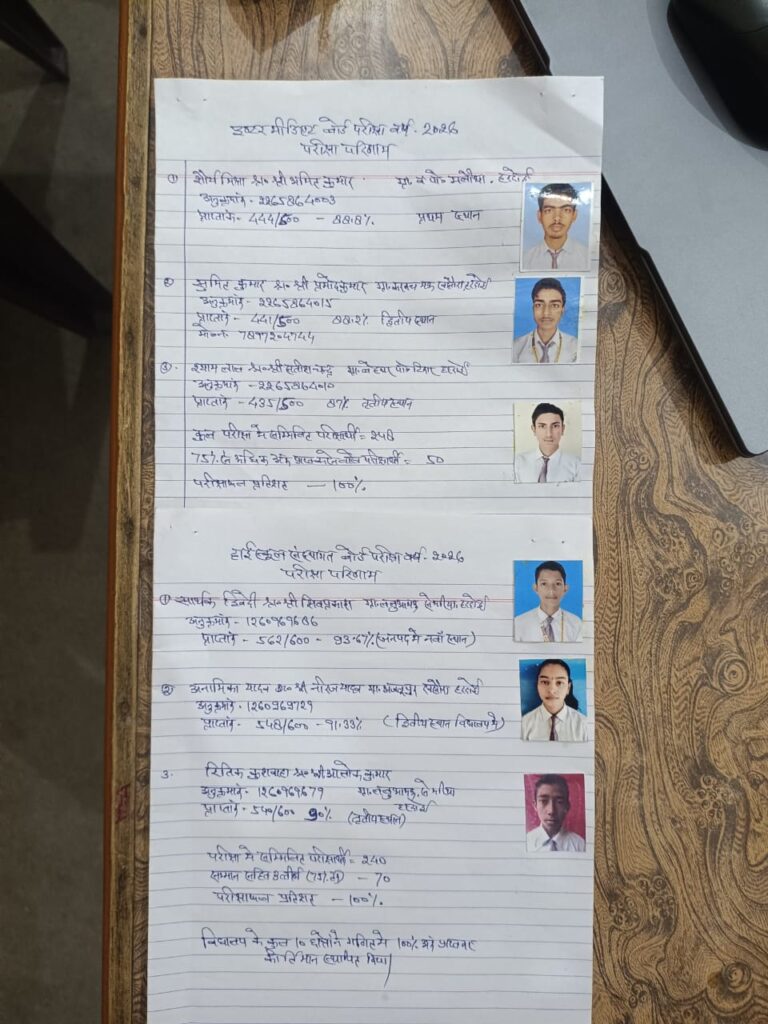 इण्टरमीडिएट बोर्ड परीक्षा वर्ष - 2026
परीक्षा परिणाम
① शौर्य मिश्रा S/o श्री अमित कुमार ग्रा. व पो०
अनुक्रमांक - 2265864003
प्राप्तांक - 444/500 - 88.8% प्रथम स्थान
② सुमित कुमार S/o श्री प्रमोद कुमार
अनुक्रमांक - 2265864015
प्राप्तांक - 441/500 88.2% द्वितीय स्थान
मो०नं० 7897204744
③. श्याम लाल S/o श्री सतीश चन्द्र
अनुक्रमांक - 2265864010
प्राप्तांक - 435/500 87% तृतीय स्थान
कुल परीक्षा में सम्मिलित परीक्षार्थी = 248
75% से अधिक अंक प्राप्त करने वाले परीक्षार्थी = 50
परीक्षाफल प्रतिशत - 100%
हाईस्कूल संस्थागत बोर्ड परीक्षा वर्ष - 2026
परीक्षा परिणाम
① सार्थक द्विवेदी S/o श्री शिवप्रकाश
अनुक्रमांक - 1260969686
प्राप्तांक - 562/600 - 93.67% (जनपद में नवाँ स्थान)
② अनामिका यादव D/o श्री नीरज यादव
अनुक्रमांक - 1260969729
प्राप्तांक - 548/600 - 91.33% (द्वितीय स्थान विद्यालय में)
3. रितिक कुशवाहा S/o श्री आलोक कुमार
अनुक्रमांक - 1260969679
प्राप्तांक - 540/600 90% (तृतीय स्थान)
परीक्षा में सम्मिलित परीक्षार्थी = 240
सम्मान सहित उत्तीर्ण (75% से) - 70
परीक्षाफल प्रतिशत - 100%
विद्यालय के कुल 10 छात्रों ने गणित में 100% अंक प्राप्त कर
कीर्तिमान स्थापित किया।